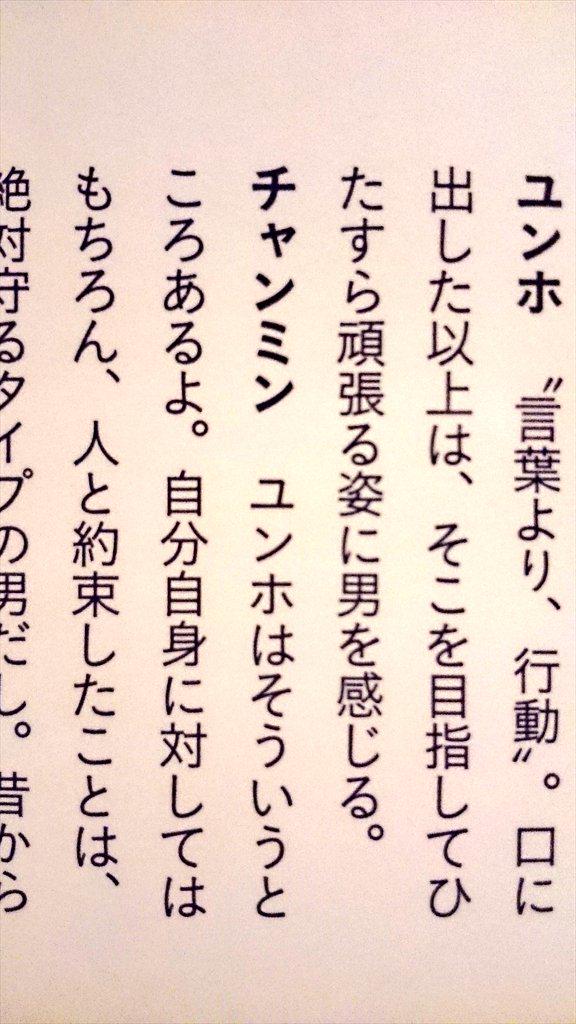 ユンホ　〝言葉より、行動〟。口に
出した以上は、そこを目指してひ
たすら頑張る姿に男を感じる。
チャンミン　ユンホはそういうと
ころあるよ。自分自身に対しては
もちろん、人と約束したことは、
絶対守るタイプの男だし。昔から